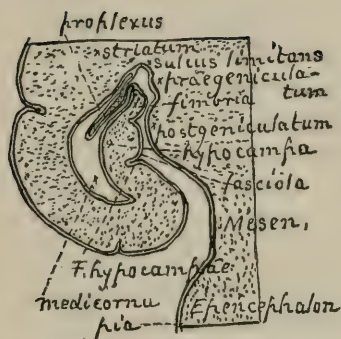 proplexus
striatum
sulcus limitans
praegenicula-
tum
fimbria
postgeniculatum
hypocampa
fasciola
Mesen.
F. hypocampae
medicornu
Epencephalon
pia